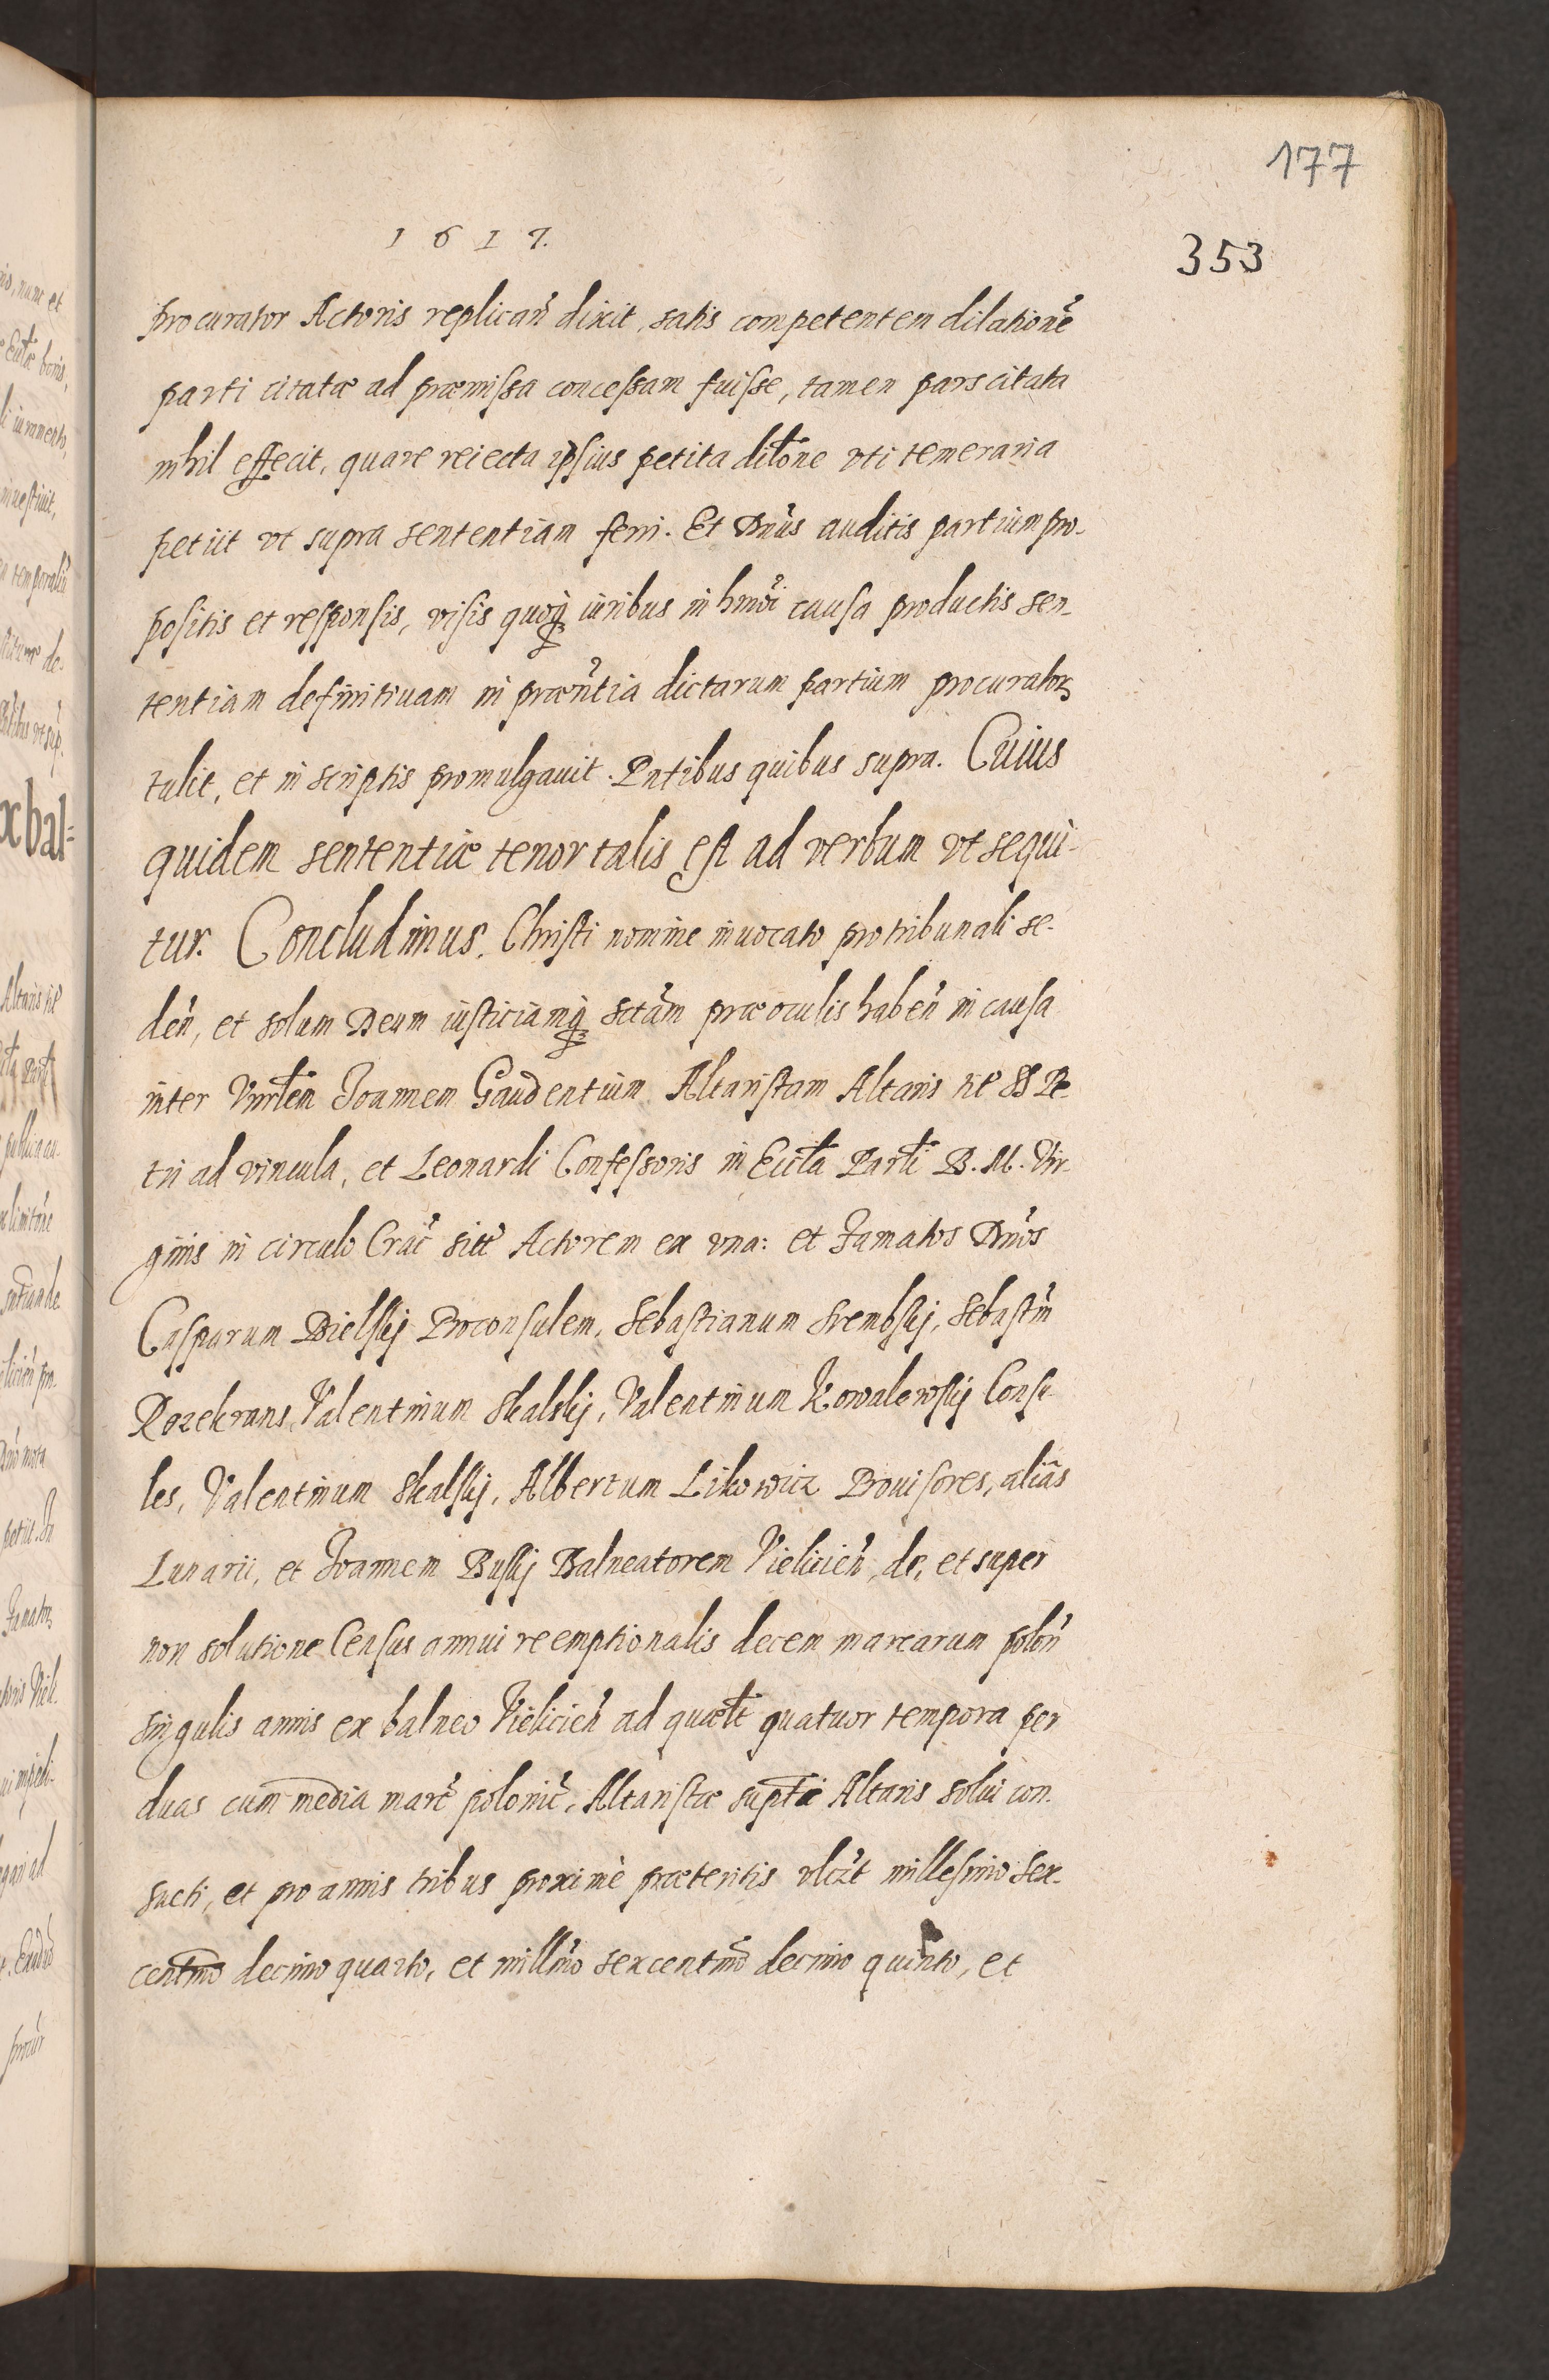 177
1617.
353
procurator Actoris replican̄ dixit, satis competentem dilationē
parti citatæ ad præmissa concessam fuisse, tamen pars citata
nihil effecit, quare reiecta ipsius petita dilt̄one vti temeraria
petiit vt supra sententiam ferri. Et Dn̄us auditis partium pro-
positis et responsis, visis quoq̃ iuribus in hmōi causa productis sen-
tentiam definitiuam in præn̄tia dictarum partium procuratorꝝ
tulit, et in scriptis promulgauit. Pntibus quibus supra. Cuius
quidem sententiæ tenor talis est ad verbum vt sequi-
tur. Concludimus. Christi nomine inuocato pro tribunali se-
den̄, et solum Deum iusticiamq̃ sctām præ oculis haben̄ in causa
inter Vnrlt̄em Joannem Gaudentium Altaristam Altaris tit̄ SS Pe-
tri ad vincula, et Leonardi Confessoris in Ecclt̄a Parlt̄i B. M. Vir-
ginis in circulo Crac̄ sitt̄ Actorem ex vna: et Famatos Dn̄os
Casparum Bielskij Proconsulem, Sebastianum Srembskij, Sebastn̄m
Rozekrans, Valentinum Skalskij, Valentinum Kowalewskij Consu-
les, Valentinum Skalskij, Albertum Likowicz Prouisores, aliās
Lunarii, et Joannem Buskij Balneatorem Vielicien̄, de, et super
non solutione Census annui reemptionalis decem marcarum polon̄
singulis annis ex balneo Vielicien̄ ad quælt̄i quatuor tempora per
duas cum media marc̄ polonic̄, Altaristæ supt̄i Altaris solui con-
sueti, et pro annis tribus proximè præteritis vlcz̄t millesimo sex-
centm̄o decimo quarto, et millm̄o sexcentm̄o decimo quinto, et